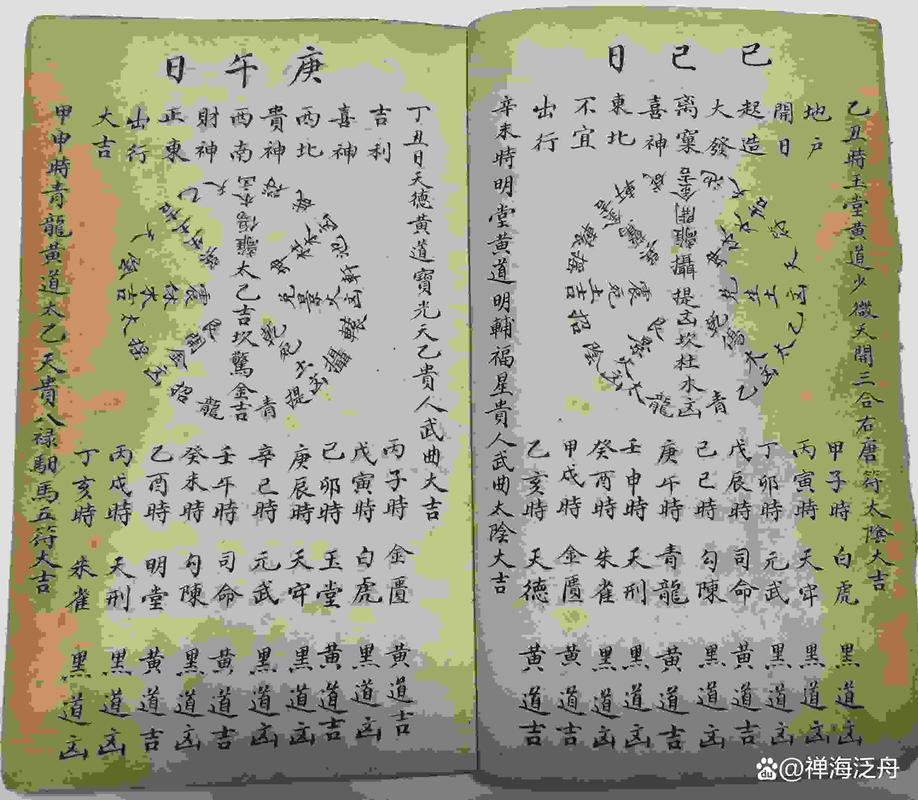 己巳日
乙丑時玉堂黃道少微天開三合右唐符太陰大吉
地户
開日
起造
大發
离窠
喜神
東北
不宜
出行
離攝提凶坎杜水凶
青龍
太乙
招
軒轅
甲子時白虎黑道凶
丙寅時天牢黑道凶
丁卯時元武黑道凶
戊辰時司命黃道吉
己巳時勾陳黑道凶
庚午時青龍黃道吉
壬申時天刑黑道凶
癸酉時朱雀黑道凶
甲戌時金匱黃道吉
乙亥時天德黃道吉
辛未時明堂黃道明輔福星貴人武曲太陰大吉
庚午日
丁丑日天德黃道寶光天乙貴人武曲大吉
吉利
喜神
西北
貴神
西南
財神
正東
出行
大吉
離太乙吉坎驚金吉
軒轅
攝提
青龍
招
丙子時金匱黃道吉
戊寅時白虎黑道凶
己卯時玉堂黃道吉
庚辰時天牢黑道凶
辛巳時元武黑道凶
壬午時司命黃道吉
癸未時勾陳黑道凶
乙酉時明堂黃道吉
丙戌時天刑黑道凶
丁亥時朱雀黑道凶
甲申時青龍黃道太乙天貴八禄馹馬五符大吉
Bai du @禅海泛舟